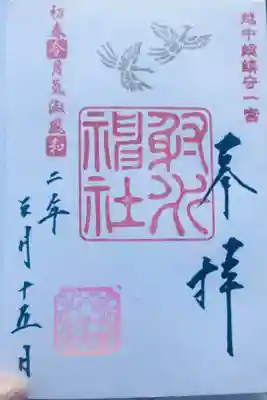 越中総鎮守一宮
奉拝
射水
神社
初春令月氣淑風和
二年
月十五日